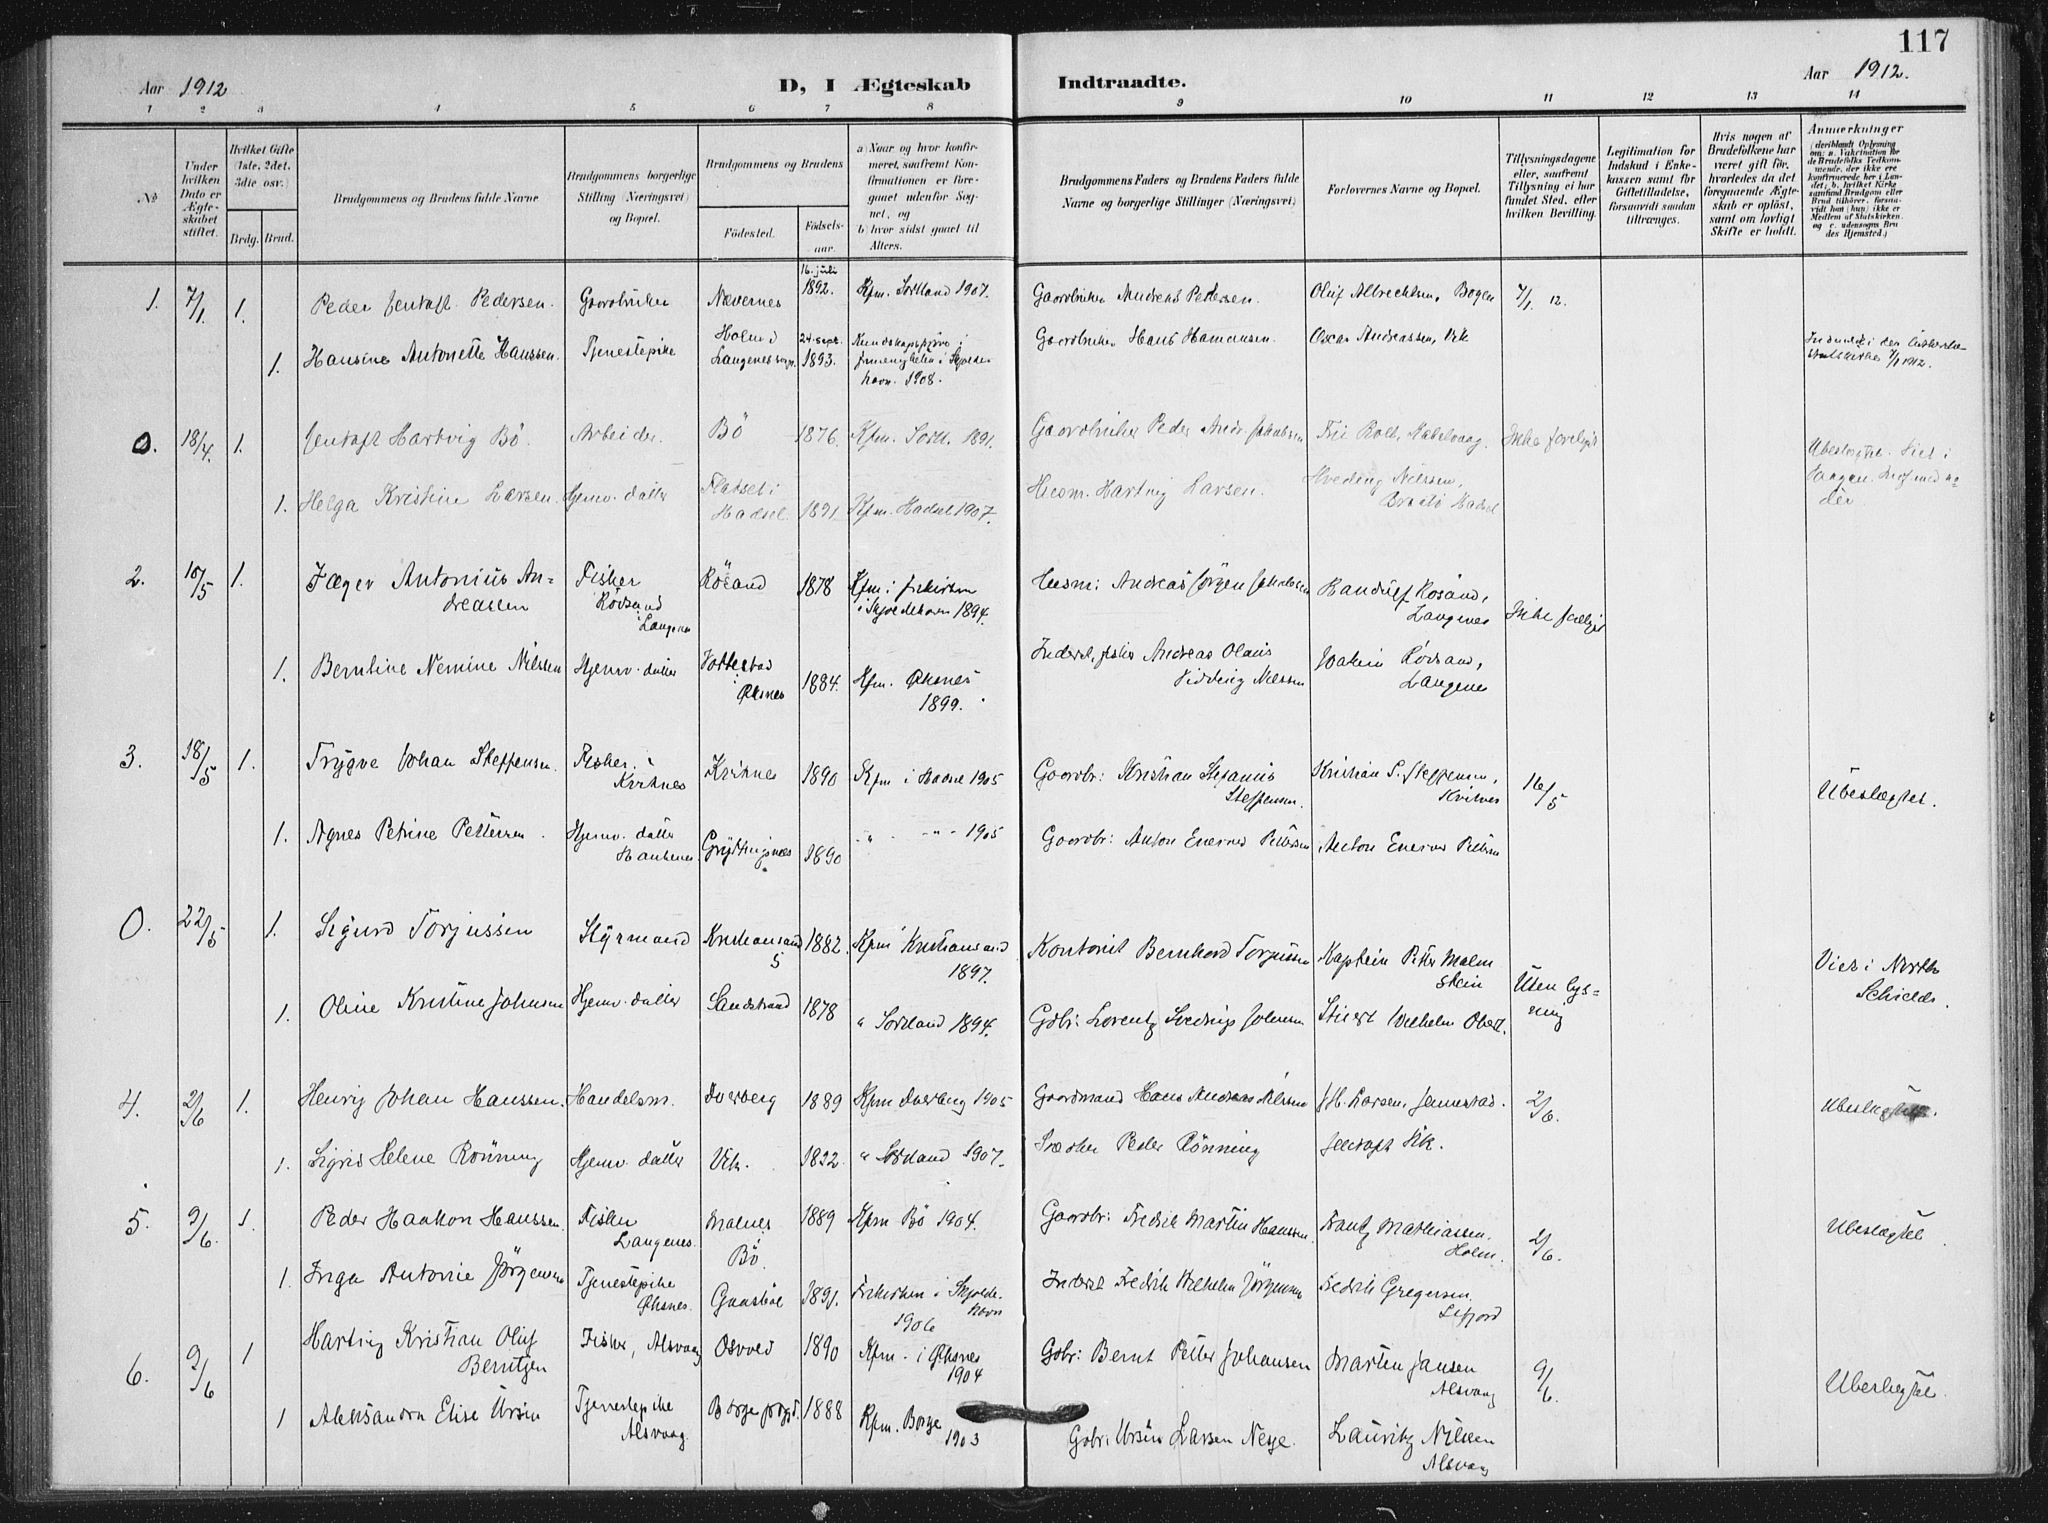 117
Aar 1912
D, I Ægteskab
Indtraadte.
Aar 1912.
1 2 3 4 5 6 7 8 9 10 11 12 13 14
№
Under hvilken Dato er Ægteskabet stiftet.
Hvilket Gifte (1ste, 2det, 3die osv.)
Brdg. Brud.
Brudgommens og Brudens fulde Navne
Brudgommens borgerlige Stilling (Næringsvei) og Bopæl.
Brudgommens og Brudens
Fødested.
Fødselsaar.
a) Naar og hvor konfirmeret, saafremt Konfirmationen er foregaaet udenfor Sognet, og
b) hvor sidst gaaet til Alters.
Brudgommens Faders og Brudens Faders fulde Navne og borgerlige Stillinger (Næringsvei)
Forlovernes Navne og Bopæl.
Tillysningsdagene eller, saafremt Tillysning ei har fundet Sted, efter hvilken Bevilling.
Legitimation for Indskud i Enkekassen samt for Giftetilladelse, forsaavidt saadan tiltrænges.
Hvis nogen af Brudefolkene har været gift før, hvorledes da det foregaaende Ægteskab er opløst, samt om lovligt Skifte er holdt.
Anmerkninger (deriblandt Oplysning om: a. Vakcination for de Brudefolks Vedkommende, der ikke ere konfirmerede her i Landet; b. hvilket Kirkesamfund Brudgom eller Brud tilhører, forsaavidt han (hun) ikke er Medlem af Statskirken, og c. udensogns Brudes Hjemsted.)
1. 7/1. 1. Peder Jentoft Pedersen. Gaardbruker Nævernes 16. juli 1892. Kfm. Sortland 1907. Gaardbruker Andreas Pedersen. Oluf Albrechtsen, Bogen 7/1 12.
1. Hansine Antonette Hanssen. Tjenestepike Holm i Langenes sogn. 24. sept. 1893. Kundskapsprøve i frimenigheten i Skjoldehavn. 1908. Gaardbruker Hans Hanssen. Oscar Andreassen, Vik
0. 18/4. 1. Jentoft Hartvig Bö Arbeider. Bö 1876. Kfm. Sortl. 1891. Gaardbruker Peder Andr. Jakobsen Ikke foreligt Ubeslægtet. Viet i
1. Helga Kristine Larsen. Hjemv. datter Flatset i Hadsel. 1891 Kfm. Hadsel 1907. Husm. Hartvig Larsen. Hveding Nilssen, Hadsel
2. 10/5 1. Jæger Antonius Andreassen Fisker Rösand Langenes Rösand 1878 Kfm. i frikirken i Skjoldehavn 1894. Husm: Andreas Jörgen Jakobsen Randulf Rösand, Langenes Ikke foreligt
1. Berntine Nemine Nilssen Hjemv. datter Öksnes 1884. Kfm. Øksnes 1899. Inderst, fisker Andreas Olaus Nilssen Joakim Rösand, Langenes
3. 18/5 1. Trygve Johan Steffensen Fisker. Kvitnes Kvitnes 1890 Kfm i Hadsel 1905 Gaardbr: Kristian Stefanus Steffensen. Kristian S. Steffensen, Kvitnes 16/5 Ubeslægtet.
1. Agnes Petrine Pettersen. Hjemv. datter Haukenes. Gryttingsnes 1890 " - " - 1905 Gaardbr: Anton Enevold Pettersen Anton Pettersen
0. 22/5 1. Sigurd Torjussen Styrmand Kristiansand S 1882. Kfm Kristiansand 1897. Kontorist Bernhard Torjussen Kaptein Peter Malmstein Uten lysning Viet i North Schields.
1. Oline Kristine Johnsen Hjemv. datter Sandstrand 1878 " Sortland 1894. Gdbr: Lorentz Johnsen Stuert Wilhelm
4. 2/6 1. Henrig Johan Hanssen. Handelsm. Dverberg 1889 Kfm Dverberg 1905 Gaardmand Hans Andreas Nilssen J.H. Larsen, Jennestad. 2/6. Ubeslægtet.
1. Sigrid Helene Rönning Hjemv. datter Vik. 1892. " Sortland 1907. Peder Rönning Jentoft Vik.
5. 9/6. 1. Peder Haakon Hanssen. Fisker Langenes. Malnes Bö. 1889 Kfm Bö 1904. Gaardbr: Fredrik Martin Hanssen. Frantz Mathiassen. Holm. 2/6. Ubeslægtet
1. Inga Antonie Jörgensen Tjenestepike Øksnes. Guusbøl 1891. Frikirken i Skjoldehavn 1906 Inderst Fredrik Wilhelm Jörgensen Fredrik Gregersen. Sefjord
6. 9/6 1 Hartvig Kristian Oluf Berntzen Fisker, Alsvaag Osvold 1890 Kfm. i Øksnes 1904 Gdbr: Bernt Petter Johansen Martin Jansen Alsvaag 9/6. Ubeslegtet.
1 Aleksandra Elise Ursin Tjenestepike Alsvaag. Borge prgd. 1888 Kfm. Borge 1903 Gdbr: Ursin Larsen Nesje. Lauritz Nilsen Alsvaag